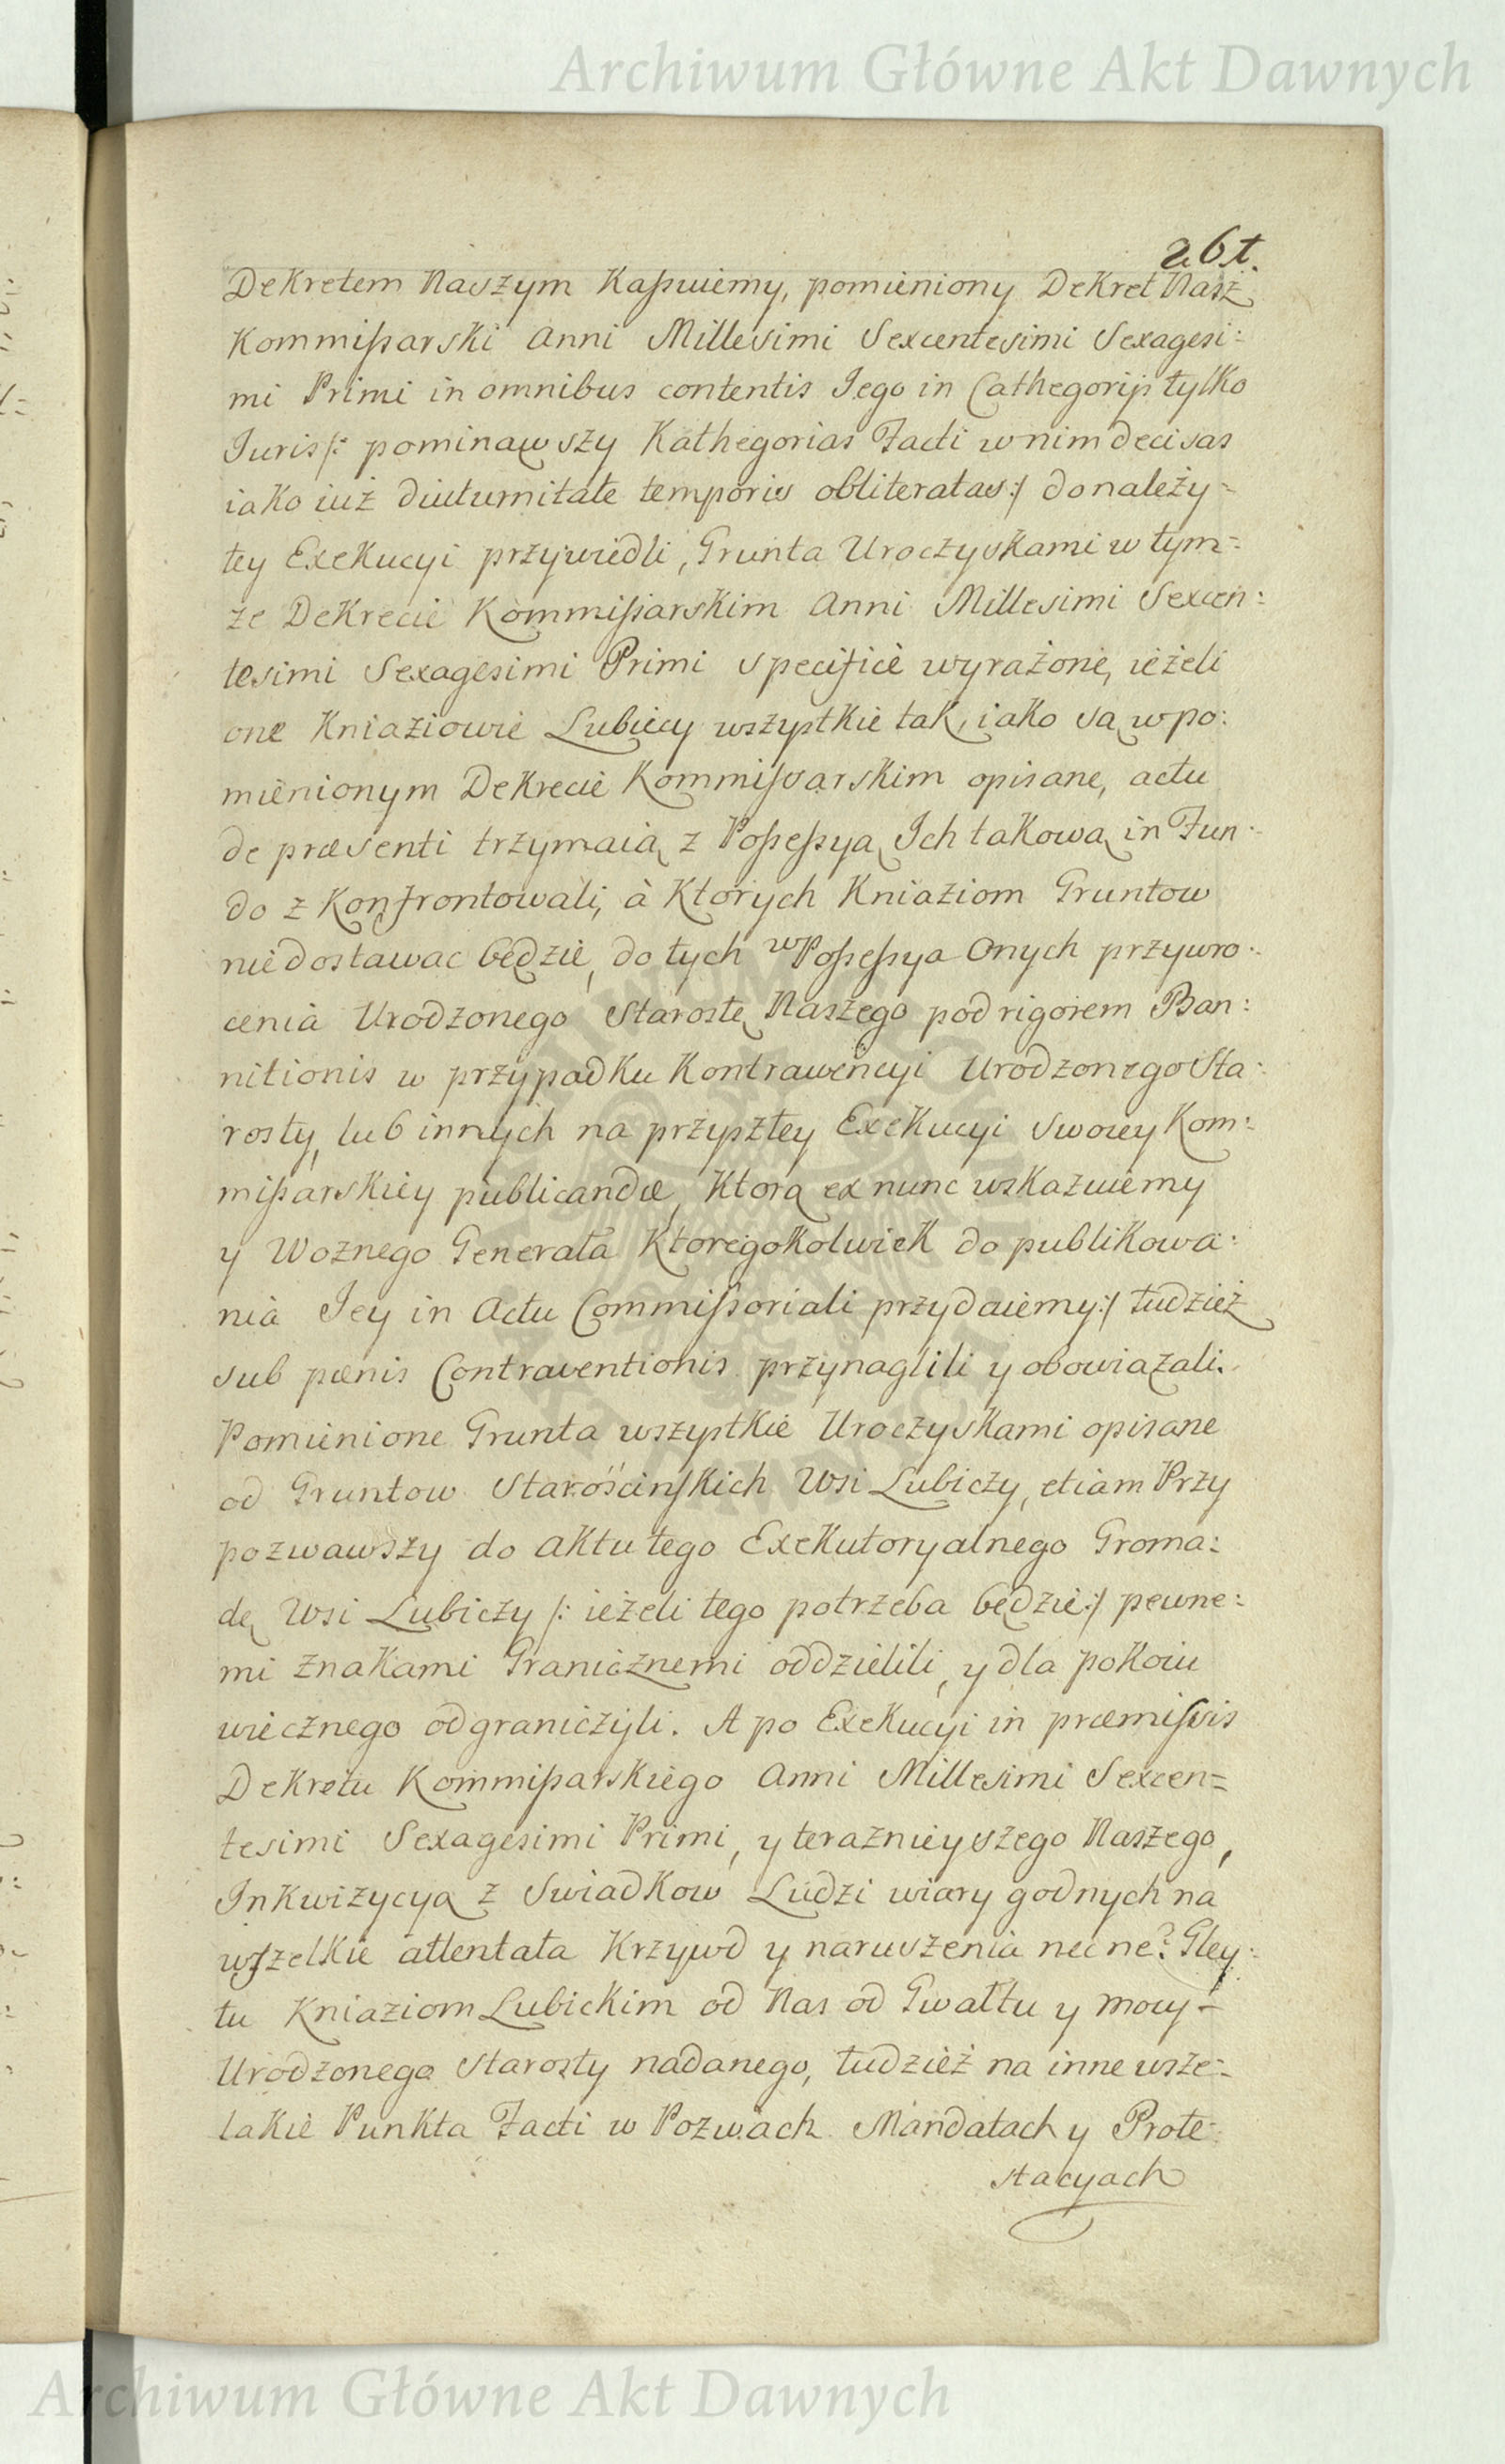 Archiwum Główne Akt Dawnych
261.
Dekretem Naszym Kassuiemy, pomieniony Dekret Nasz
Kommissarski Anni Millesimi Sexcentesimi Sexagesi:
mi Primi in omnibus contentis Jego in Cathegorij tylko
Juris /: pominąwszy Kathegorias Facti w nim decisas
iako iuż diuturnitate temporis obliteratas :/ do należy=
tey Exekucyi przywiedli, Grunta Uroczyskami w tym=
że Dekrecie Kommissarskim Anni Millesimi Sexcen:
tesimi Sexagesimi Primi specifice wyrażone, ieżeli
one Kniaziowie Lubiccy wszystkie tak, iako są w po:
mienionym Dekrecie Kommissarskim opisane, actu
de præsenti trzymaią z Possessyą Ich takową in Fun:
do z Konfrontowali, à Ktorych Kniaziom Gruntow
niedostawac będzie, do tych w Possessyą Onych przywro:
cenia Urodzonego Starostę Naszego pod rigorem Ban:
nitionis w przypadku Kontrawencyi Urodzonego Sta:
rosty, lub innych na przyszłey Exekucyi Swoiey Kom:
missarskiey publicandæ, Ktorą ex nunc wskazuiemy
y Woznego Generała Ktoregokolwiek do publikowa:
nia Jey in Actu Commissoriali przydaiemy :/ tudzież
sub pœnis Contraventionis przynaglili y obowiązali.
Pomienione Grunta wszystkie Uroczyskami opisane
od Gruntow Starościnskich Wsi Lubiczy, etiam Przy
pozwawszy do Aktu tego Exekutoryalnego Groma:
dę Wsi Lubiczy /: ieżeli tego potrzeba będzie :/ pewne:
mi Znakami Granicznemi oddzielili, y dla pokoiu
wiecznego odgraniczyli. A po Exekucyi in præmissis
Dekretu Kommissarskiego Anni Millesimi Sexcen=
tesimi Sexagesimi Primi, y teraznieyszego Naszego,
Inkwizycyą z Swiadkow Ludzi wiary godnych na
wszelkie attentata Krzywd y naruszenia nec ne? Gley:
tu Kniaziom Lubickim od Nas od Gwałtu y mocy=
Urodzonego Starosty nadanego, tudzież na inne wsze=
lakie Punkta Facti w Pozwach Mandatach y Prote:
stacyach
Archiwum Główne Akt Dawnych